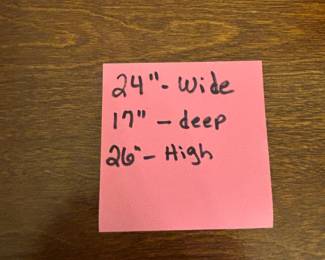 24"- Wide
17" - deep
26"- High